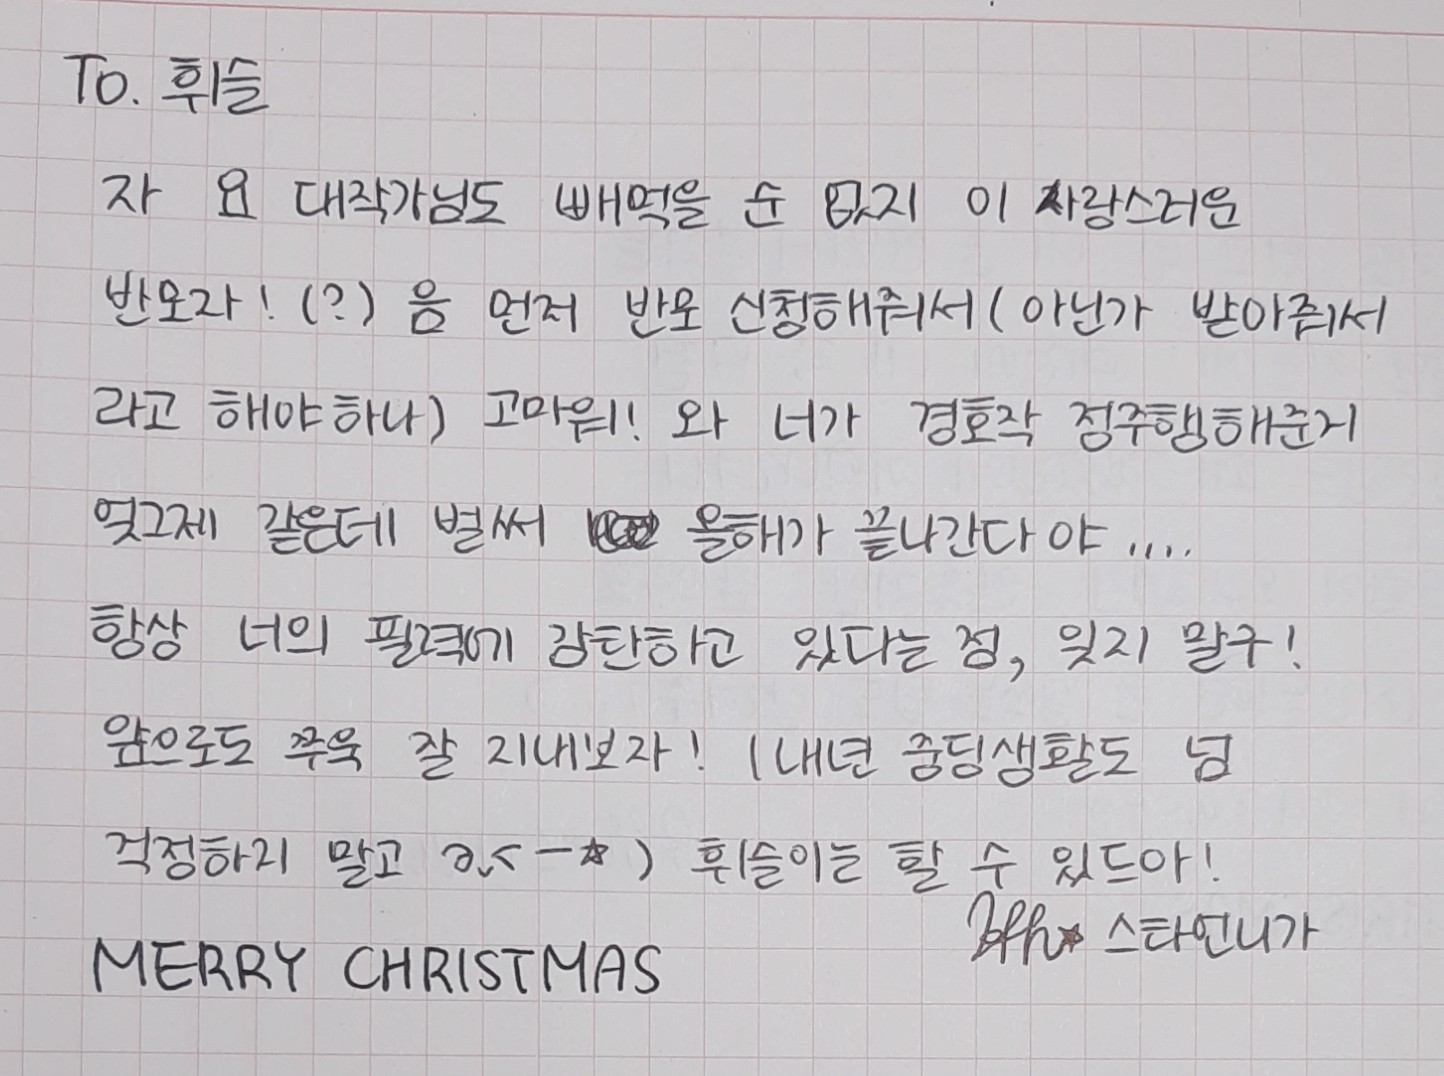 To. 휘슬
자 요 대작가님도 빼먹을 순 없지 이 사랑스러운
반모자! (?) 음 먼저 반모 신청해줘서 (아닌가 받아줘서
라고 해야하나) 고마워! 와 너가 경호작 정주행해준거
엊그제 같은데 벌써 올해가 끝나간다야.....
항상 너의 필력에 감탄하고 있다는 점, 잊지 말구!
앞으로도 쭈욱 잘 지내보자! (내년 중딩생활도 넘
걱정하지 말고 ><-☆) 휘슬이는 할 수 있드아!
스타언니가
MERRY CHRISTMAS